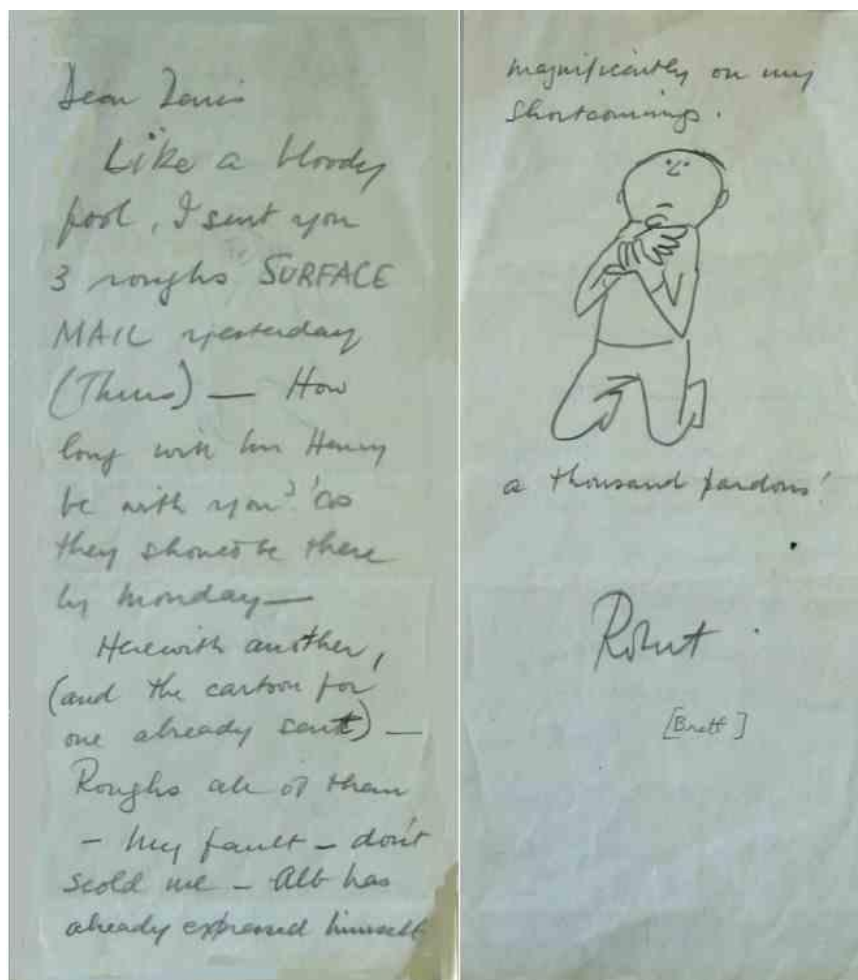 Dear Louis
Like a bloody
fool, I sent you
3 roughs SURFACE
MAIL yesterday
(Thurs) — How
long will Henry
be with you? as
they should be there
by Monday —
Herewith another,
(and the cartoon for
one already sent) —
Roughs all of them
- My fault - don't
scold me - Alb has
already expressed himself
magnificently on my
shortcomings.
a thousand pardons!
Robert
[Brett]